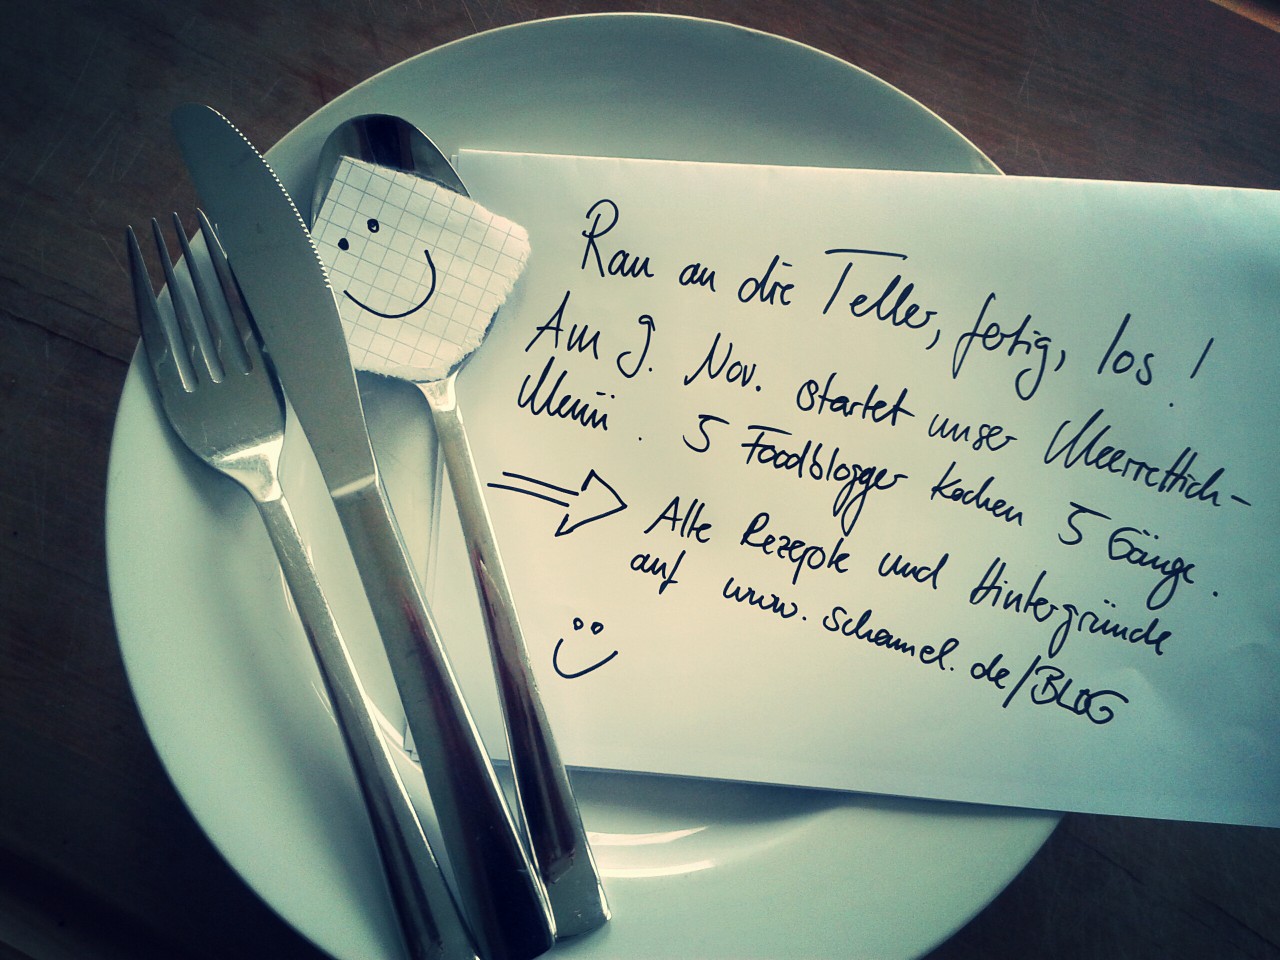 Ran an die Teller, fertig, los!
Am 9. Nov. startet unser Meerrettich-
Menü. 5 Foodblogger kochen 5 Gänge.
⇒ Alle Rezepte und Hintergründe
auf www.schamel.de/BLOG